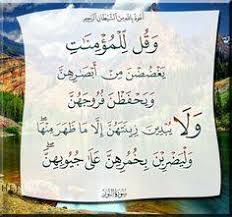 أعوذ بالله من الشيطان الرجيم
وَقُل لِّلْمُؤْمِنَٰتِ
يَغْضُضْنَ مِنْ أَبْصَٰرِهِنَّ
وَيَحْفَظْنَ فُرُوجَهُنَّ
وَلَا يُبْدِينَ زِينَتَهُنَّ إِلَّا مَا ظَهَرَ مِنْهَا ۖ
وَلْيَضْرِبْنَ بِخُمُرِهِنَّ عَلَىٰ جُيُوبِهِنَّ ۖ
سورة النور